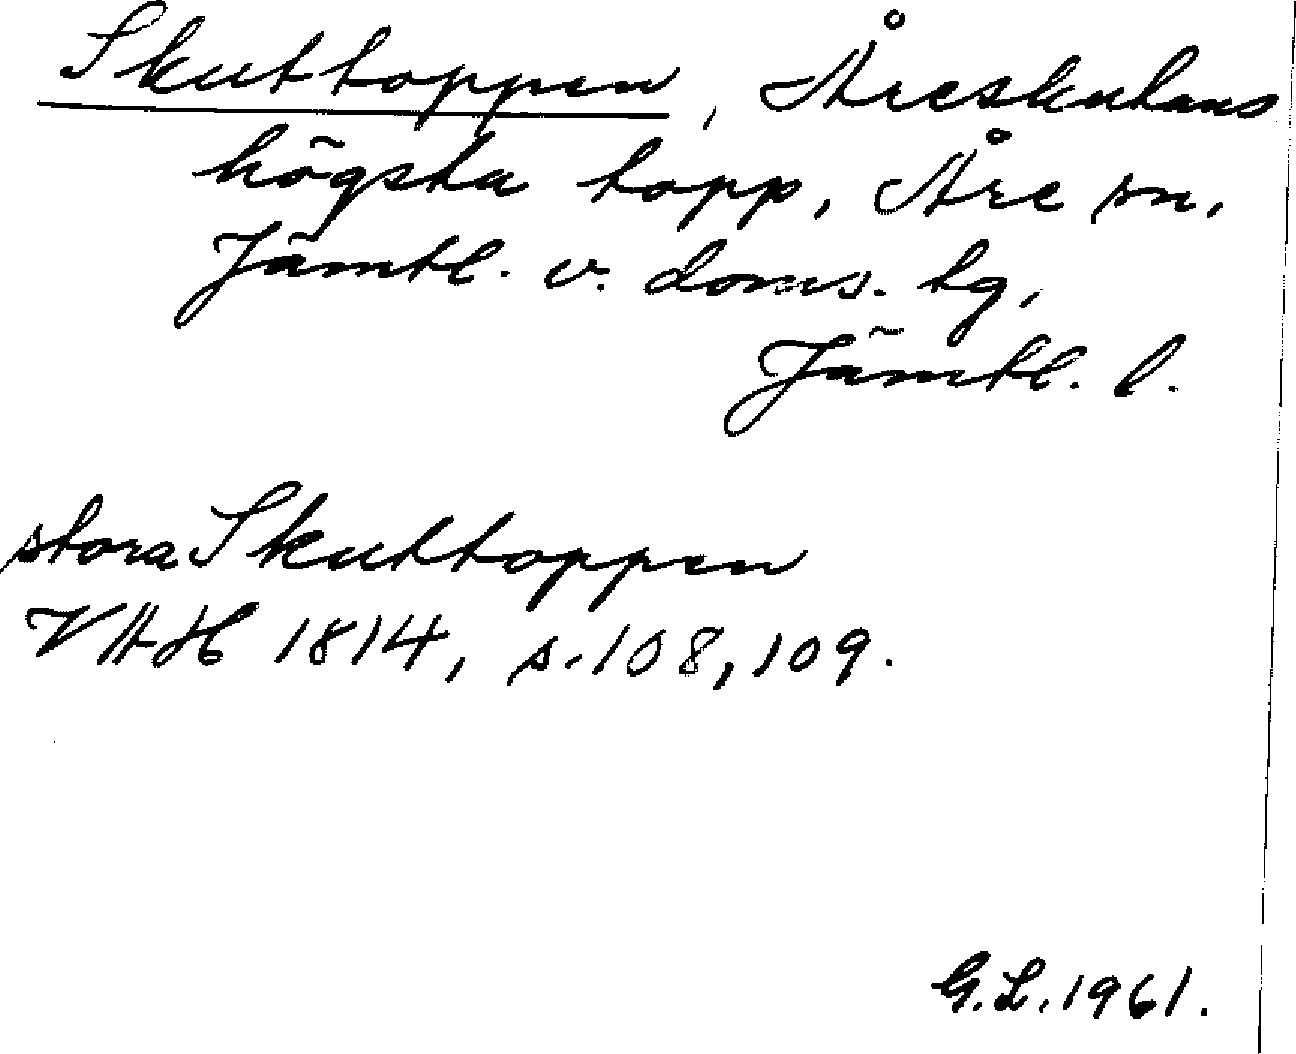 Skuttoppen, Åreskutans
högsta topp, Åre sn,
Jämtl. v. doms. tg,
Jämtl. l.
stora Skuttoppen
VAH 1814, s. 108, 109.
G. L. 1961.